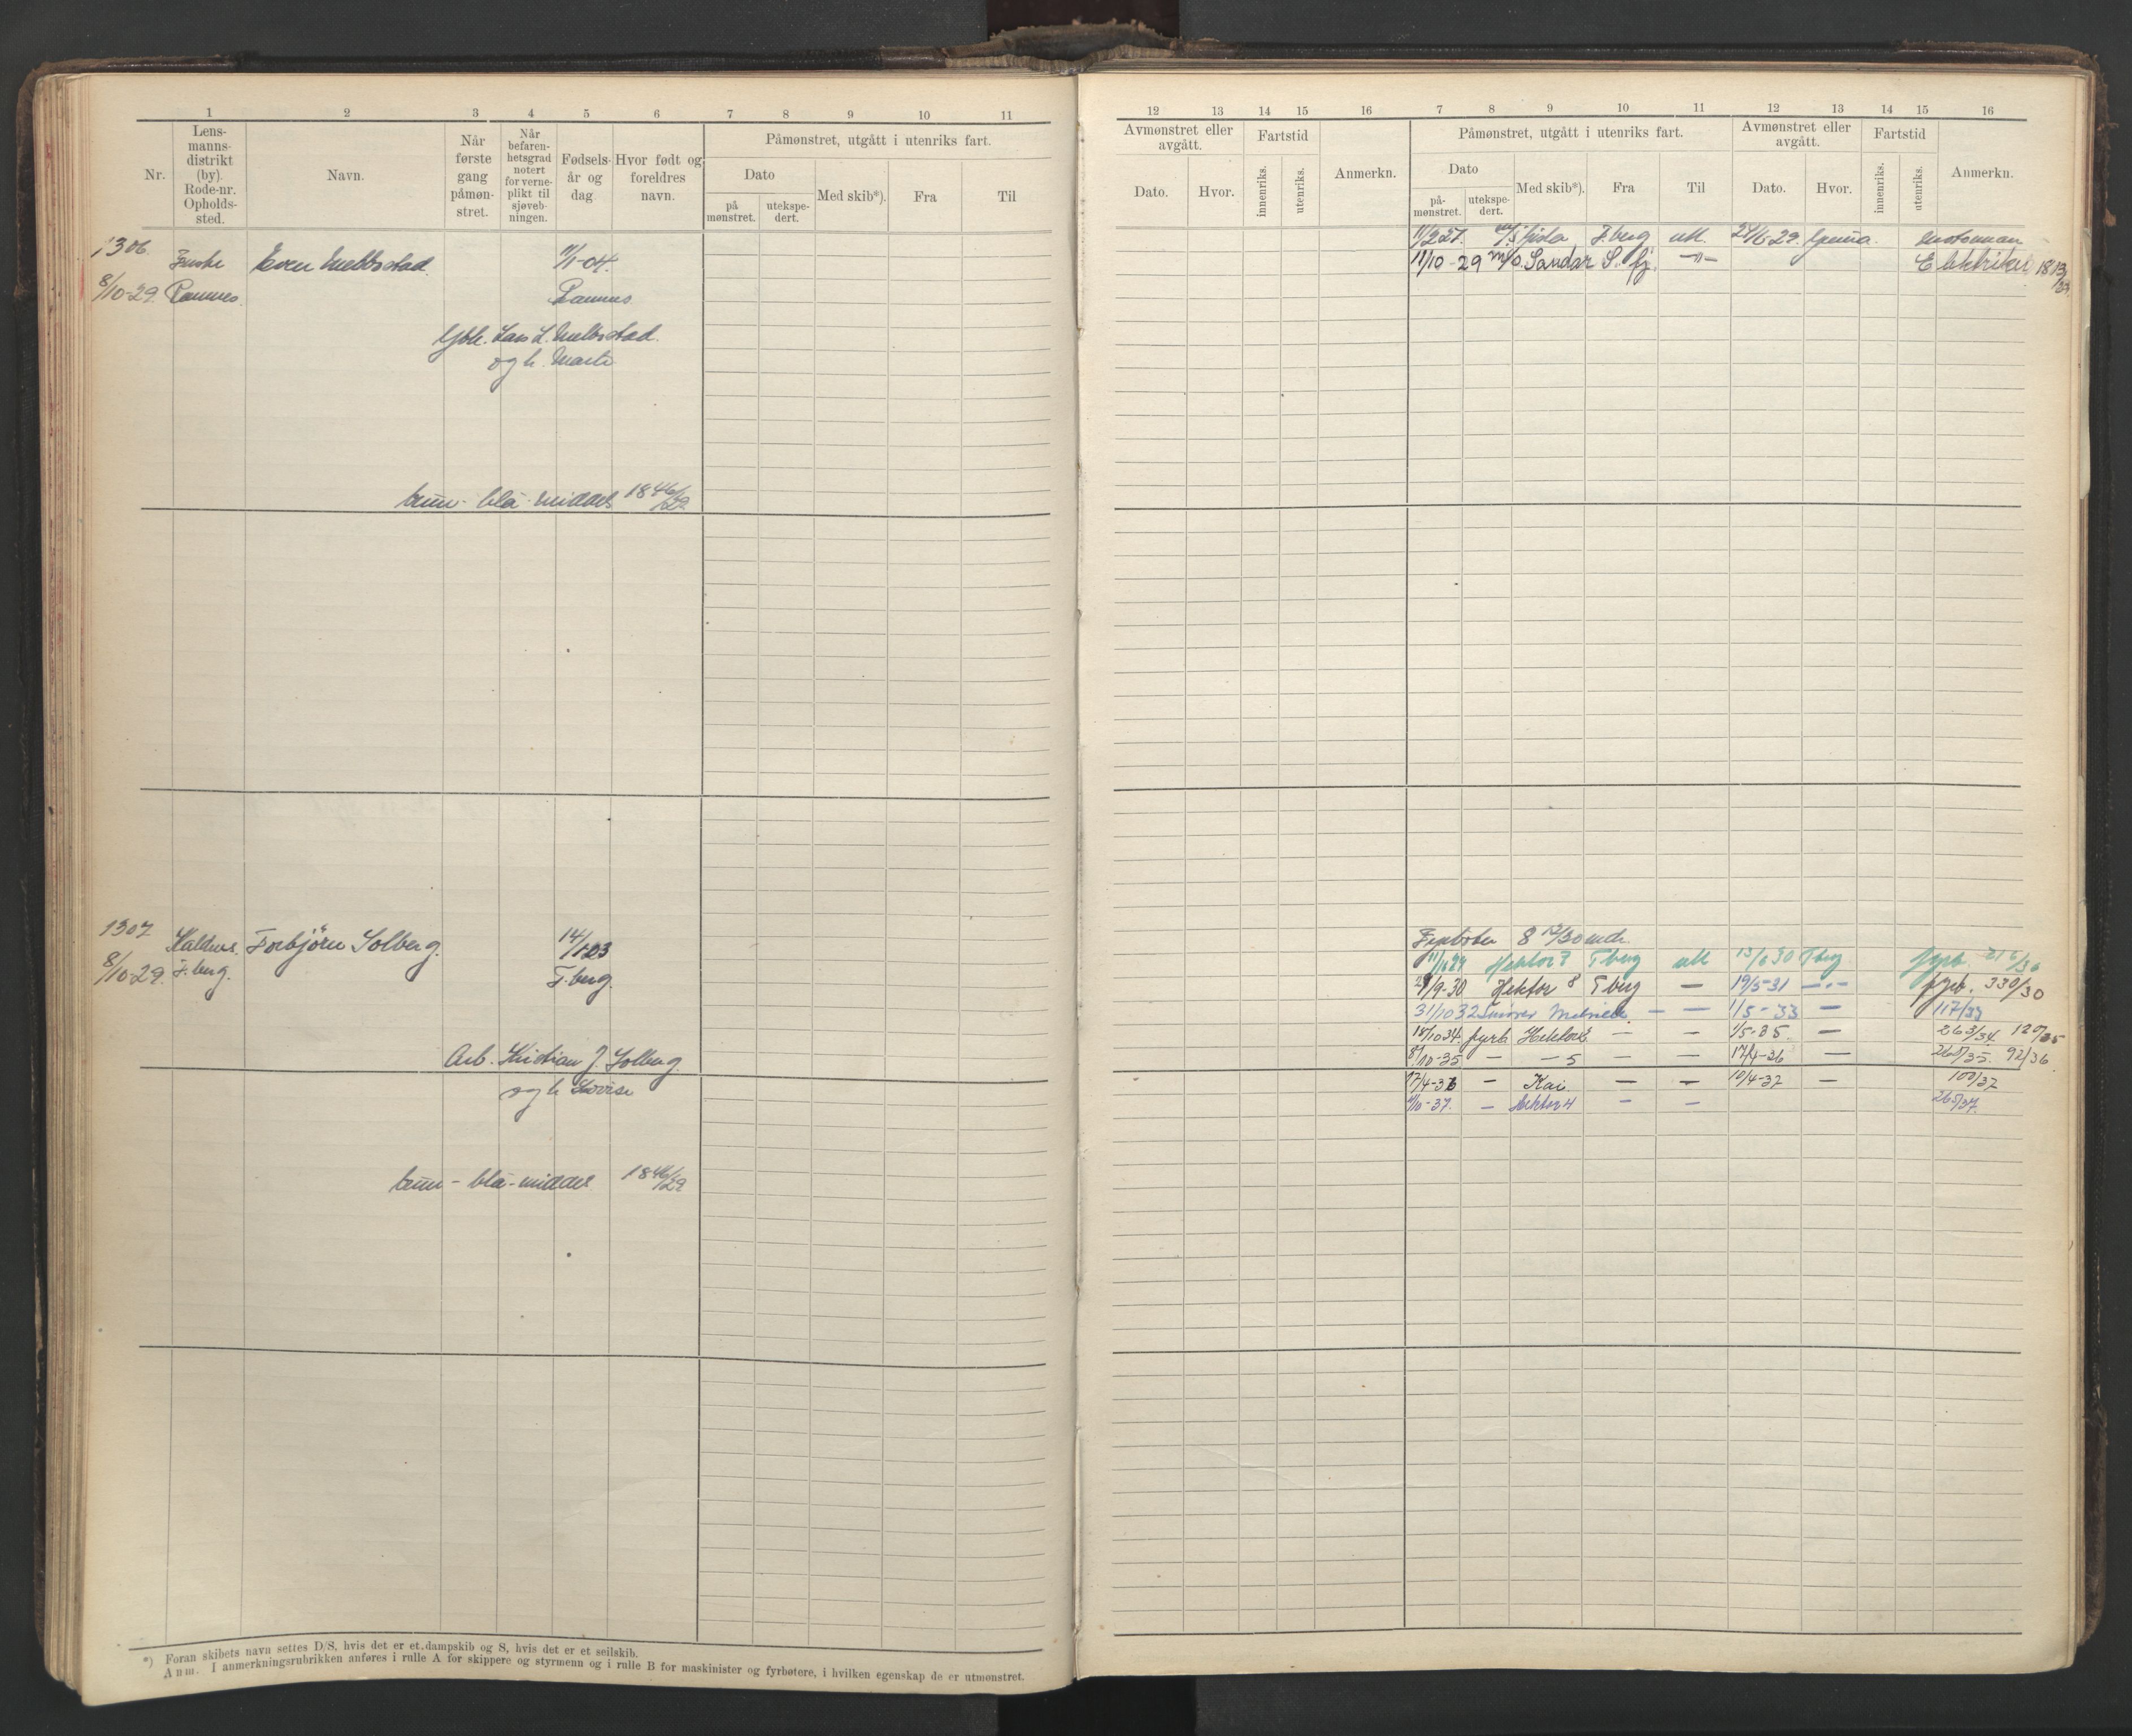 1 2 3 4 5 6 7 8 9 10 11
Nr.
Lens-
manns-
distrikt
(by).
Rode-nr.
Opholds-
sted.
Navn.
Når
første
gang
påmøn-
stret.
Når
befaren-
hetsgrad
notert
for verne-
plikt til
sjøveb-
ningen.
Fødsels-
år og
dag.
Hvor født og
foreldres
navn.
Påmønstret, utgått i utenriks fart.
Dato
på
mønstret.
utekspe-
dert.
Med skib*).
Fra
Til
1306.
8/10-29. Ramnes.
Even Melbostad.
4/1-04.
Ramnes.
Gbr. Lars L. Melbostad.
og h. Marte
brun - blå - middels 1846/29
1307
8/10-29.
Kaldnes.
T.berg.
Torbjörn Solberg.
14/1-03
T.berg.
Arb. Kristian J. Solberg.
og h. Lovise
brun - blå - middels 1846/29
*) Foran skibets navn settes D/S, hvis det er et dampskib og S, hvis det er et seilskib.
Anm. I anmerkningsrubrikken anføres i rulle A for skippere og styrmenn og i rulle B for maskinister og fyrbøtere, i hvilken egenskap de er utmønstret.
12 13 14 15 16 7 8 9 10 11 12 13 14 15 16
Avmønstret eller
avgått.
Dato.
Hvor.
Fartstid
innenriks.
utenriks.
Anmerkn.
Påmønstret, utgått i utenriks fart.
Dato
på-
mønstret.
utekspe-
dert.
Med skib*).
Fra
Til
Avmønstret eller
avgått.
Dato.
Hvor.
Fartstid
innenriks.
utenriks.
Anmerkn.
11/2 27. T.berg utl. 28/6-29. Motorman
11/10-29 M/S. Sandar S. fj. -"- Elektriker 1813/33
Fyrbøter 8 12/30 mdr.
11/10 29 Hektor 7 Tberg utl 13/6 30 Tberg fyrb. 216/30
29/9-30 Hektor 8 Tberg — 19/5-31 -"- fyrb. 330/30
31/10 32 — — 1/5-33 — 117/33
18/10 34. fyrb Hektor — — 1/5-35. — 263/34. 120/35
8/10-35 — — 5 — — 17/4-36 — 265/35. 92/36
17/4-36 — Kai — — 10/4-37 — 100/37
1/10-37. — Hektor 4 — — 265/37.